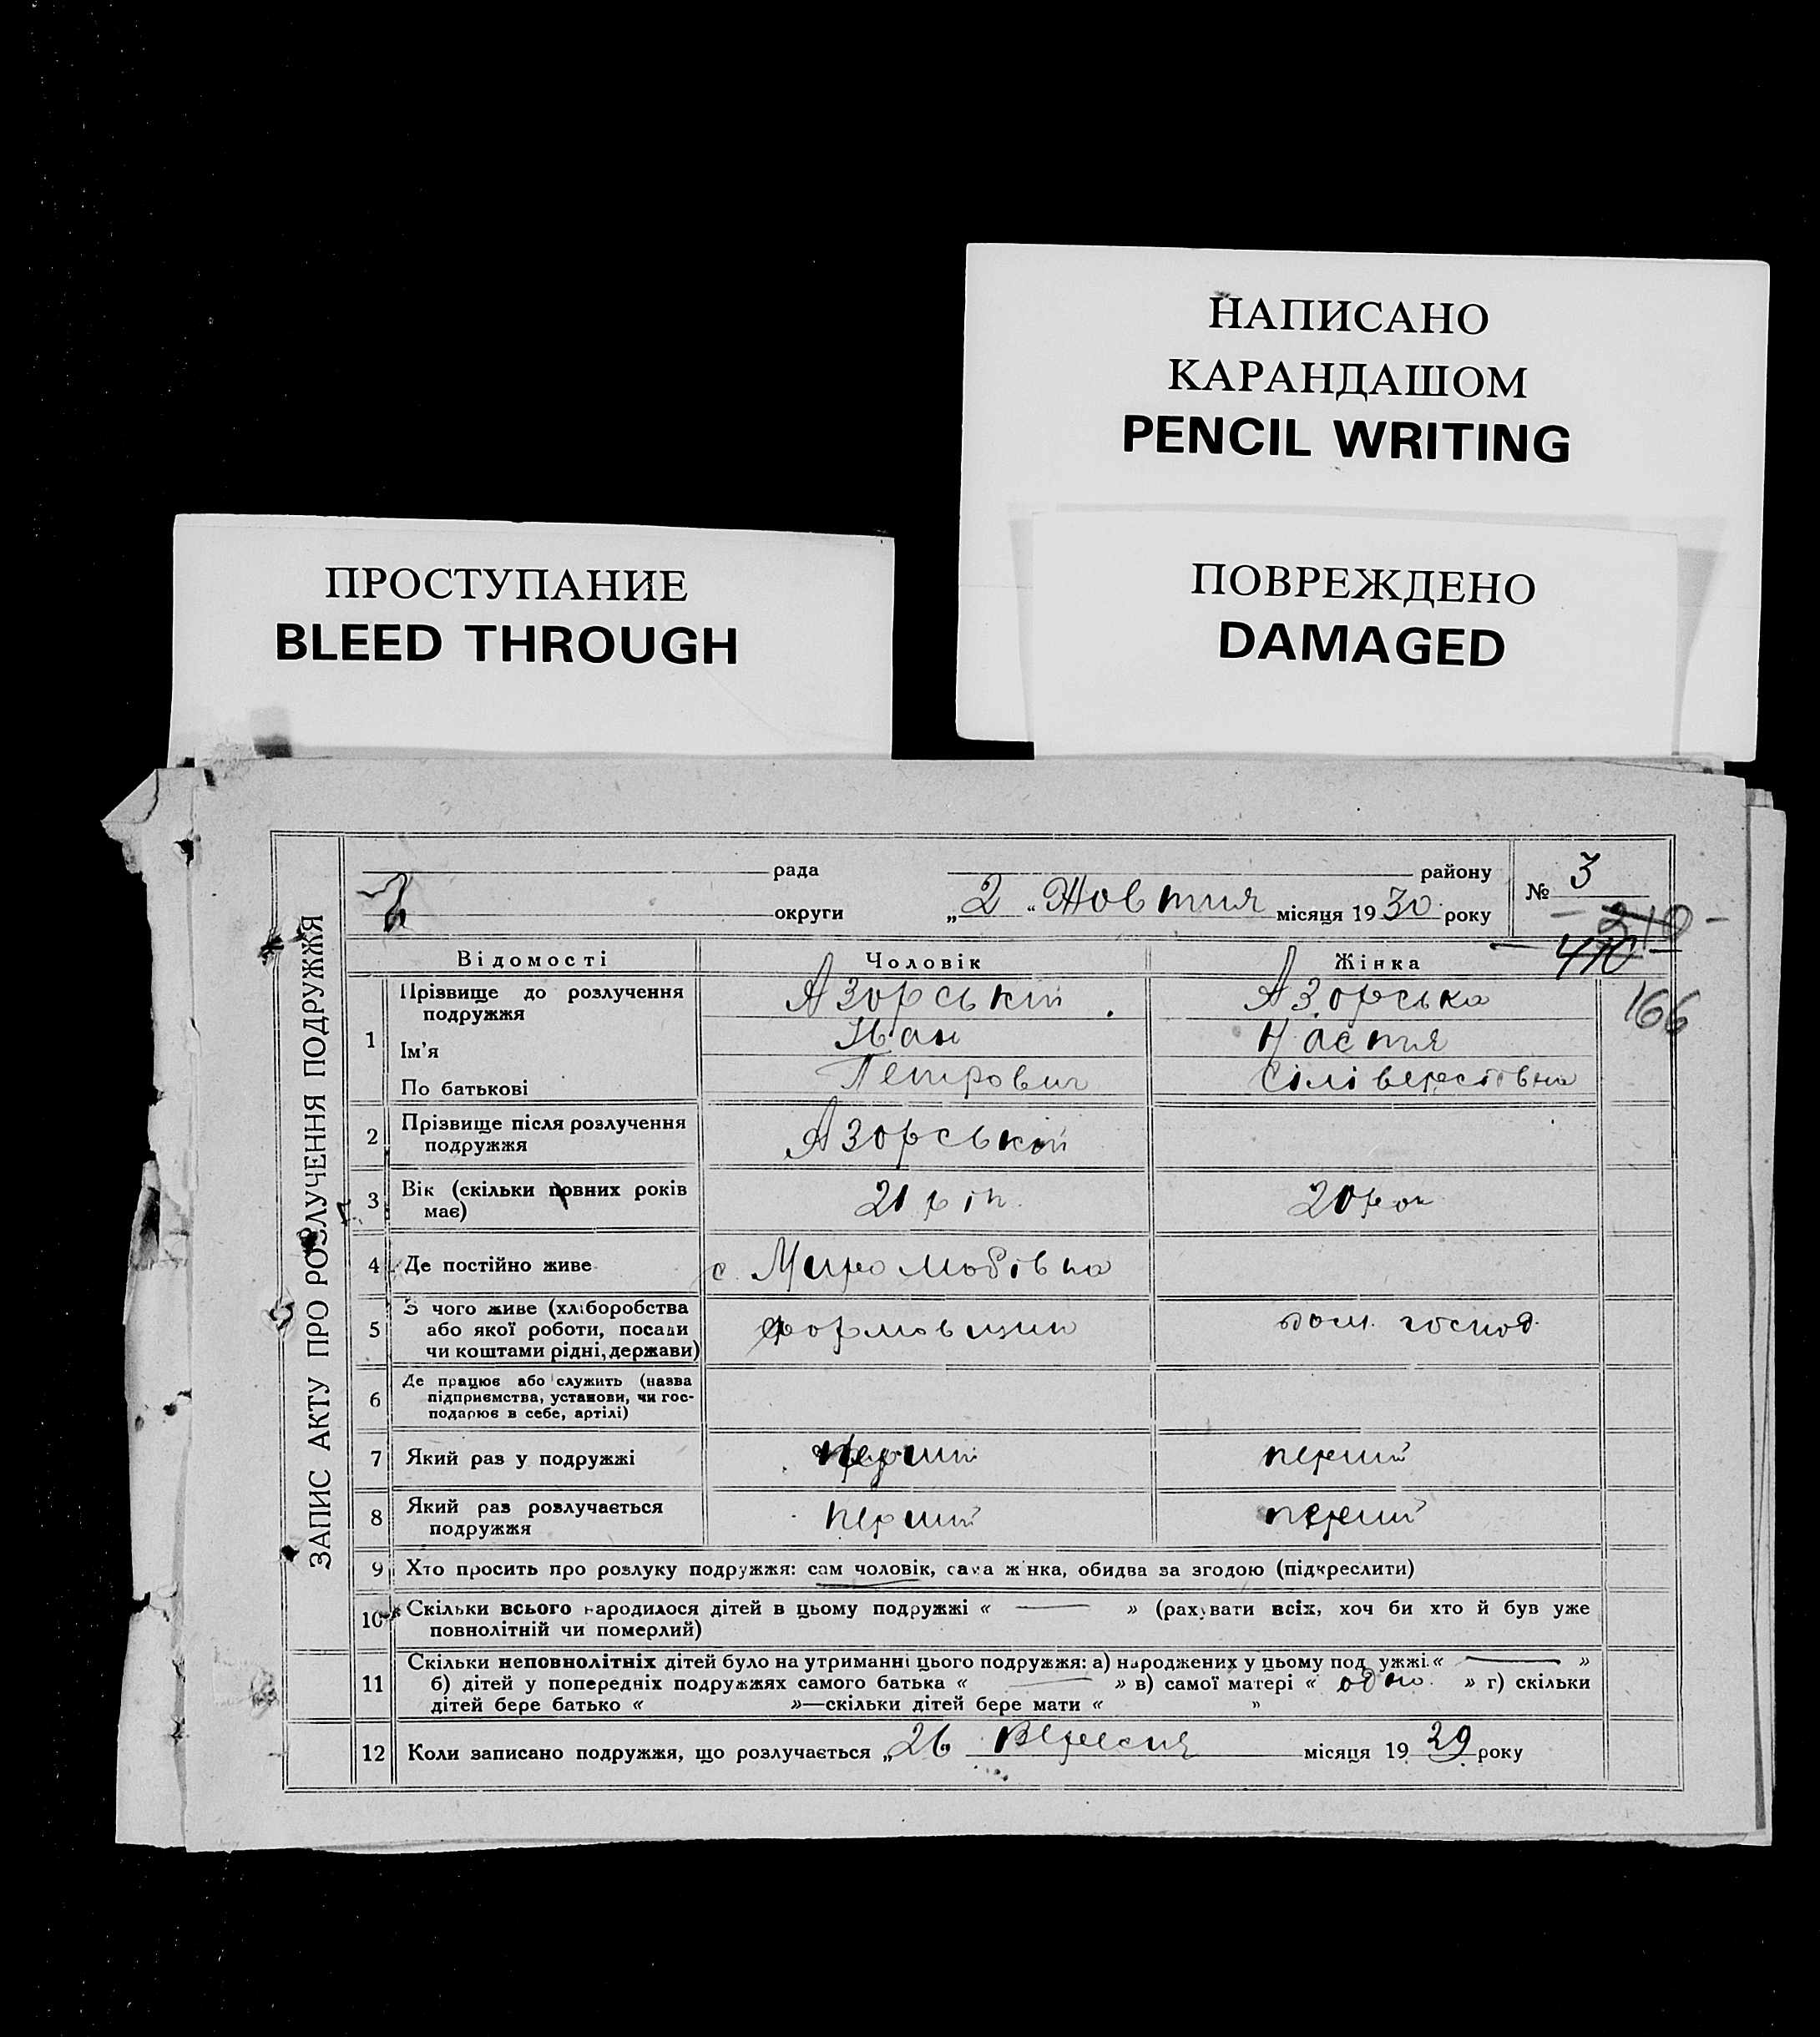 НАПИСАНО
КАРАНДАШОМ
PENCIL WRITING
ПРОСТУПАНИЕ
BLEED THROUGH
ПОВРЕЖДЕНО
DAMAGED
ЗАПИС АКТУ ПРО РОЗЛУЧЕННЯ ПОДРУЖЖЯ
рада району
округи „2“ Жовтня місяця 1930 року
№ 3
210
410
166
Відомості Чоловік Жінка
1 Прізвище до розлучення подружжя Азорський Азорська
Ім’я Іван Настя
По батькові Петрович Сіліверстовна
2 Прізвище після розлучення
подружжя Азорський
3 Вік (скільки повних років
має) 21 рік 20 рок
4 Де постійно живе с. Миролюбівка
5 З чого живе (хліборобства
або якої роботи, посади
чи коштами рідні, держави) формовщик дом. господ.
6 Де працює або служить (назва
підприємства, установи, чи гос-
подарює в себе, артілі)
7 Який раз у подружжі перший перший
8 Який раз розлучається
подружжя перший перший
9 Хто просить про розлуку подружжя: сам чоловік, сама жінка, обидва за згодою (підкреслити)
10 Скільки всього народилося дітей в цьому подружжі « — » (рахувати всіх, хоч би хто й був уже
повнолітній чи померлий)
11 Скільки неповнолітніх дітей було на утриманні цього подружжя: а) народжених у цьому подружжі « — »
б) дітей у попередніх подружжях самого батька « — » в) самої матері « одно » г) скільки
дітей бере батько « »—скільки дітей бере мати « »
12 Коли записано подружжя, що розлучається „26“ Вересня місяця 1929 року